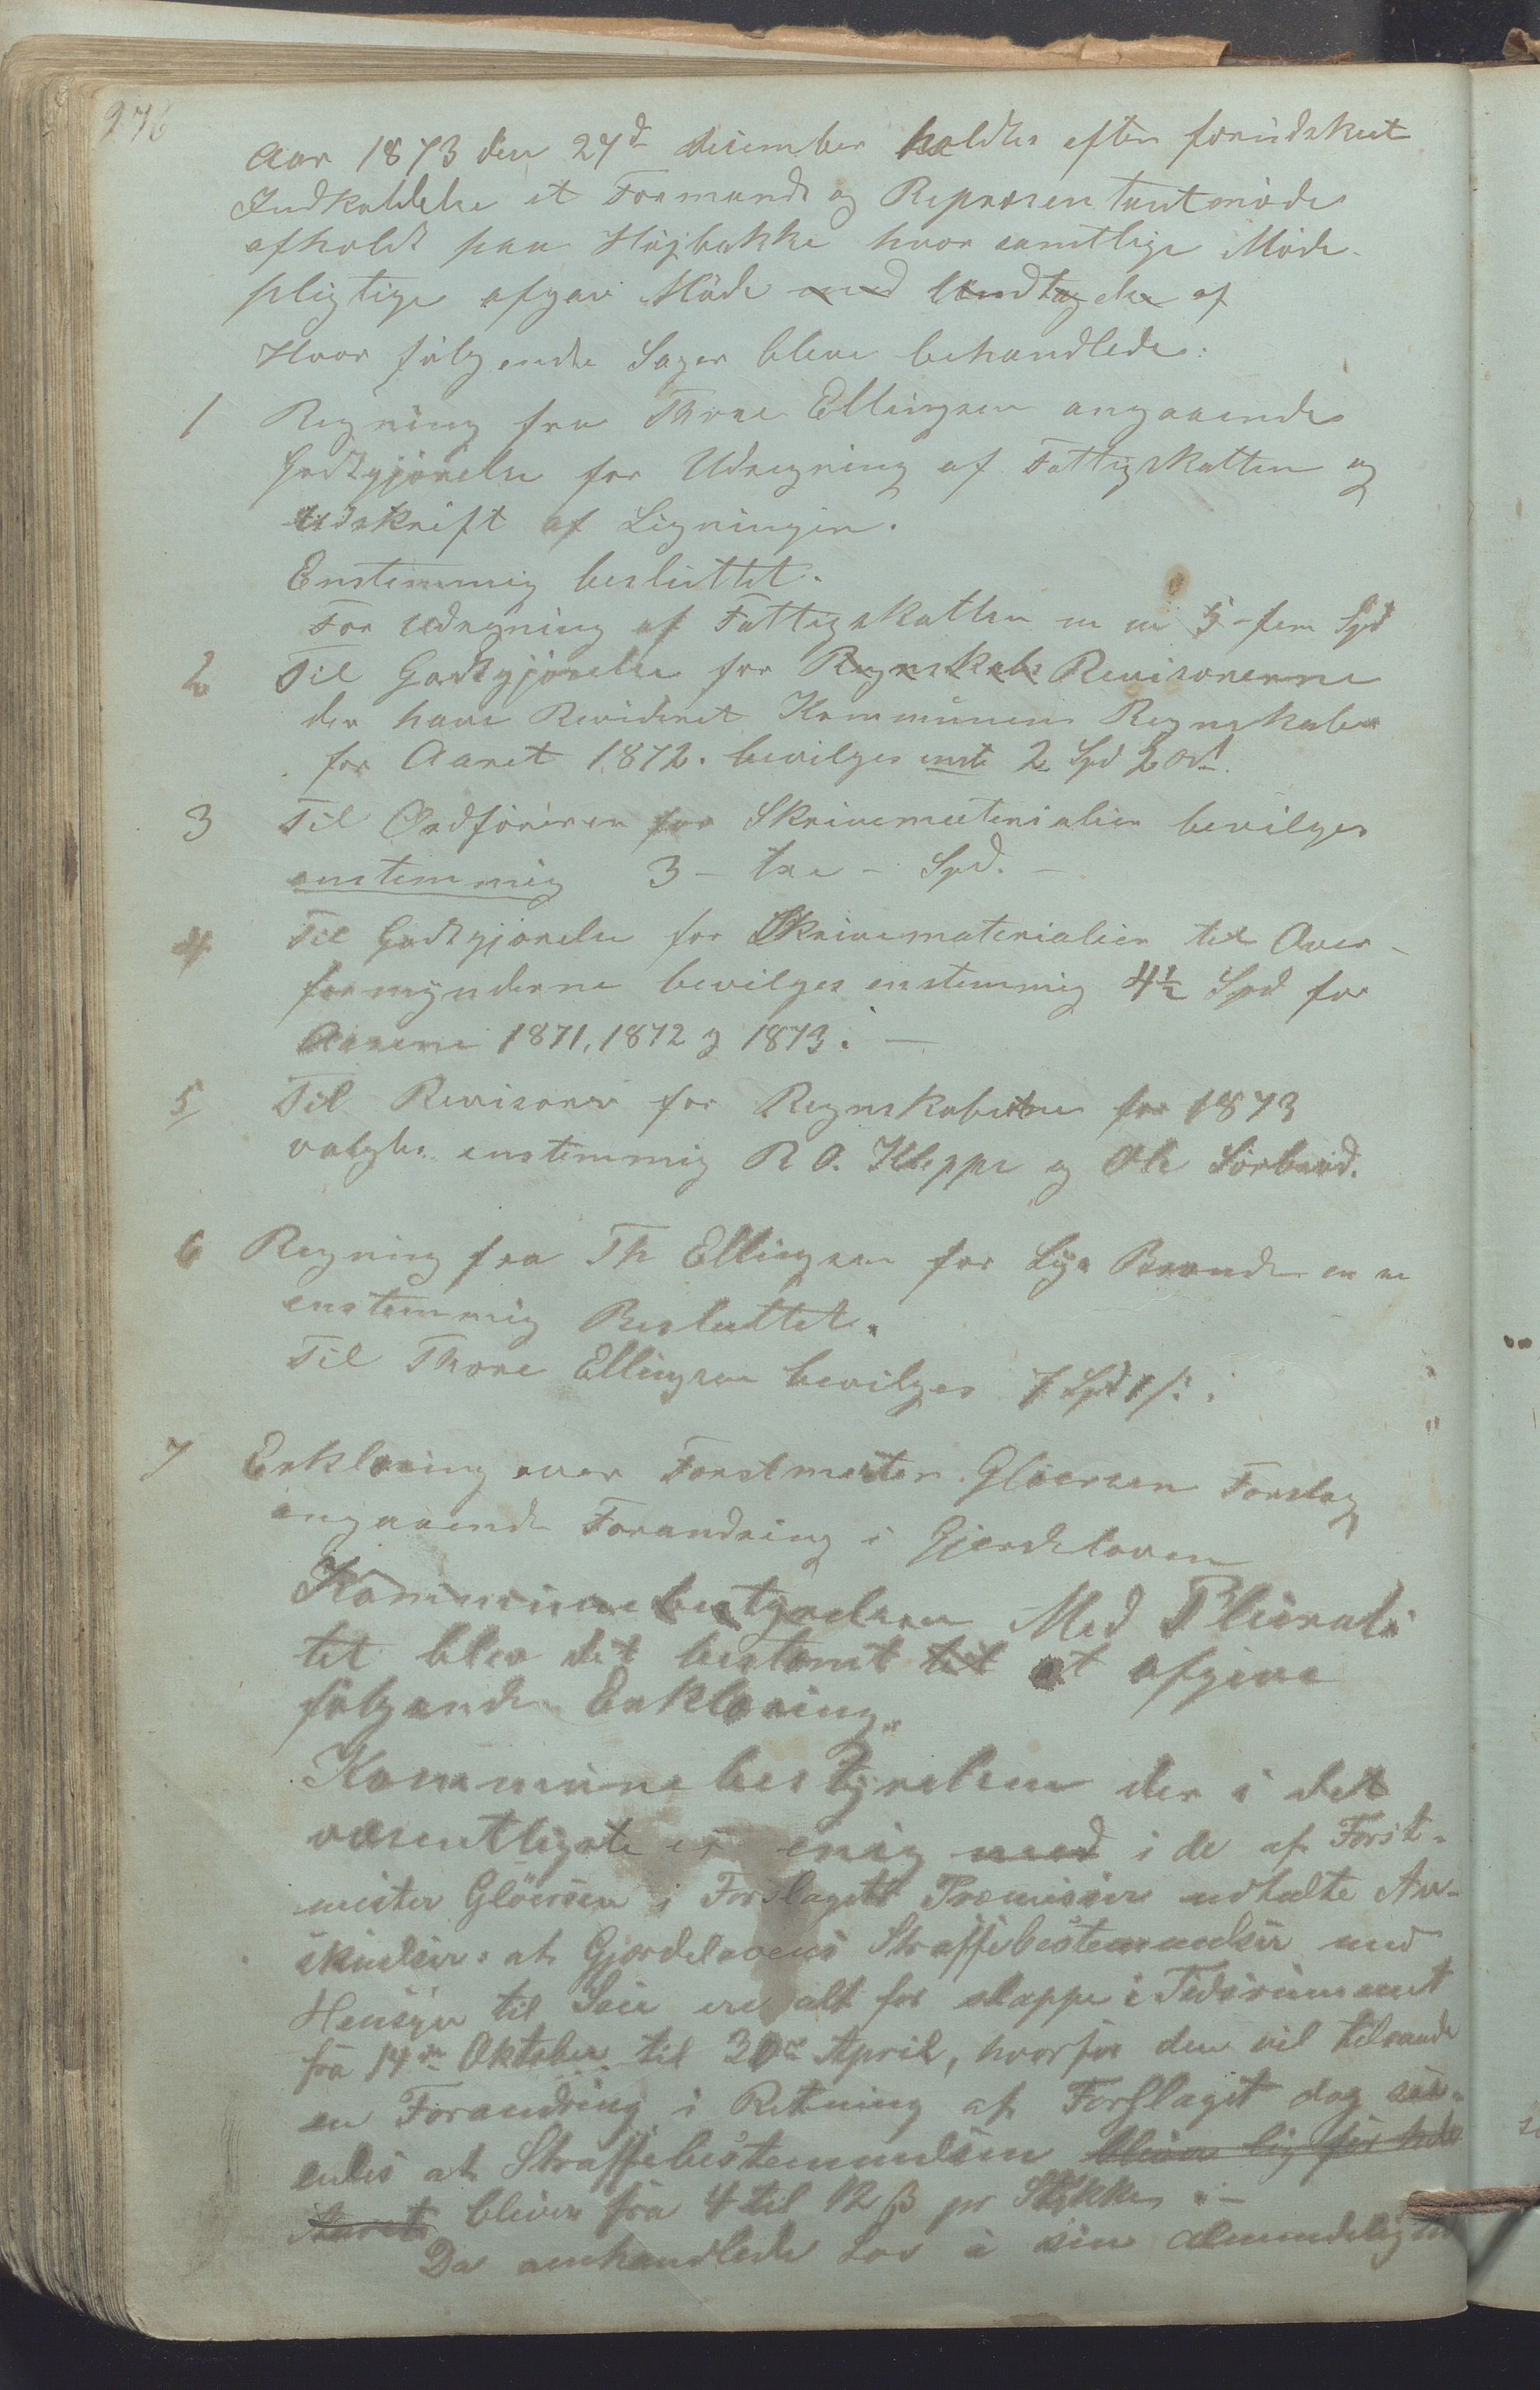 276
Aar 1873 den 27d desember holdtes efter forudskeet
Indkaldelse et Formands og Repræsentantmøde
afholdt paa Høibakke hvor samtlige Møde-
pligtige afgav Møde med Undtagelse af
Hvor følgende Sager bleve behandlede:
1 Regning fra Thore Ellingsen angaaende
Godtgjørelse for Udregning af Fattigskatten og
udskrift af Ligningen.
Enstemmig besluttet.
For udregning af Fattigskatten m m 5 - fem Spd
2 Til Godtgjørelse for Regnskabs Revisorerne
der have Revideret Kommunens Regnskaber
for Aaret 1872. bevilges enst 2 Spd 2 ort
3 Til Ordføreren for Skrivematerialier bevilges
enstemmig 3 - tre - Spd. -
4 Til Godtgjørelse for Skrivematerialier til Over-
formynderne bevilges enstemmig 4½ Spd for
Aarene 1871, 1872 og 1873. -
5 Til Revisorer for Regnskaberne for 1873
valgtes enstemmig R O. Kleppe og Ole Sørbrød.
6 Regning fra Th Ellingsen for Lys Brænde m m
enstemmig Besluttet.
Til Thore Ellingsen bevilges 7 Spd
7 Erklæring over Forstmester Gløersen Forslag
angaaende Forandring i Gjerdeloven
Kommunebestyrelsen Med Plurali
tet blev det bestemt til at afgive
følgende Erklæring.
Kommunebestyrelsen der i det
væsentligste er enig med i de af Forst-
mester Gløersen i Forslagets Præmisser udtalte An-
skuelser: at Gjærdelovens Straffebestemmelser med
Hensyn til Sau ere alt for slappe i Tidsrummet
fra 14de Oktober til 30te April, hvorfor den vil tilraade
en Forandring i Retning af Forslaget dog saa-
ledes at Straffebestemmelsen bliver lig for hele
Aaret bliver fra 4 til 12 ß pr Stykke. -
Da omhandlede Lov i sin Almindelighed